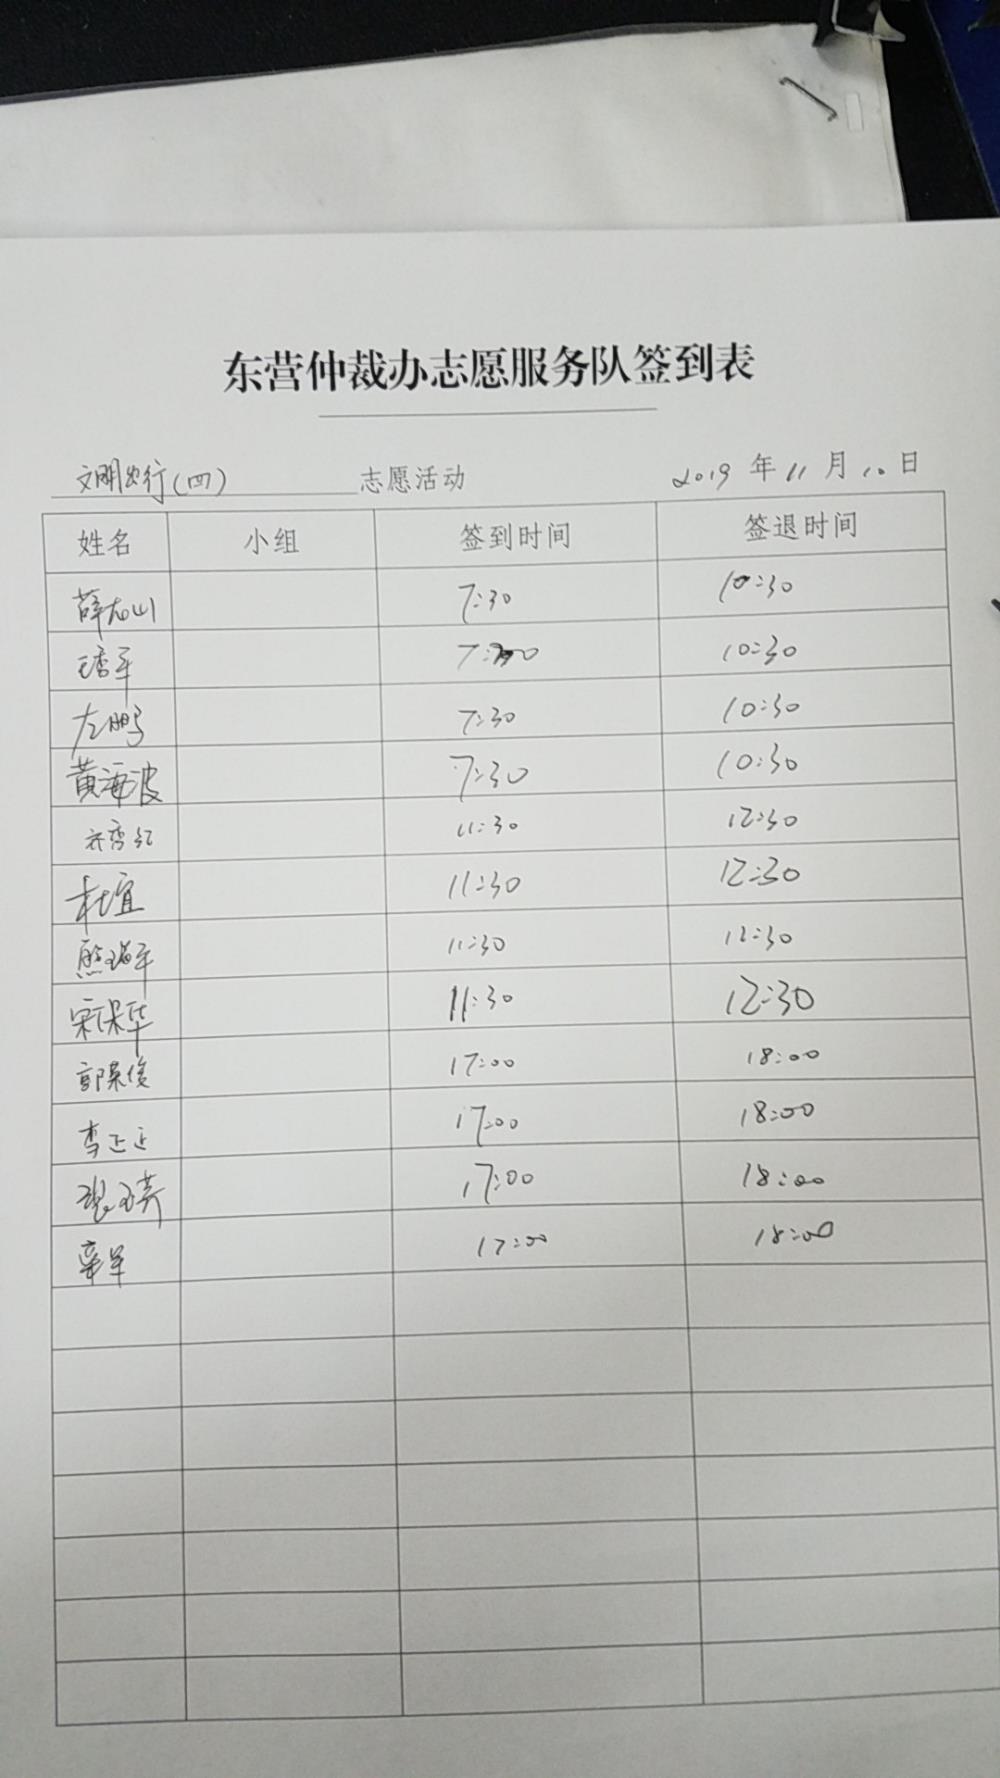 东营仲裁办志愿服务队签到表
文明出行(四) 志愿活动 2019 年 11 月 10 日
姓名 小组 签到时间 签退时间
7:30 10:30
7:30 10:30
左鹏 7:30 10:30
黄海波 7:30 10:30
11:30 12:30
杜宜 11:30 12:30
熊瑞军 11:30 12:30
宋保华 11:30 12:30
郭荣俊 17:00 18:00
李正正 17:00 18:00
17:00 18:00
17:00 18:00